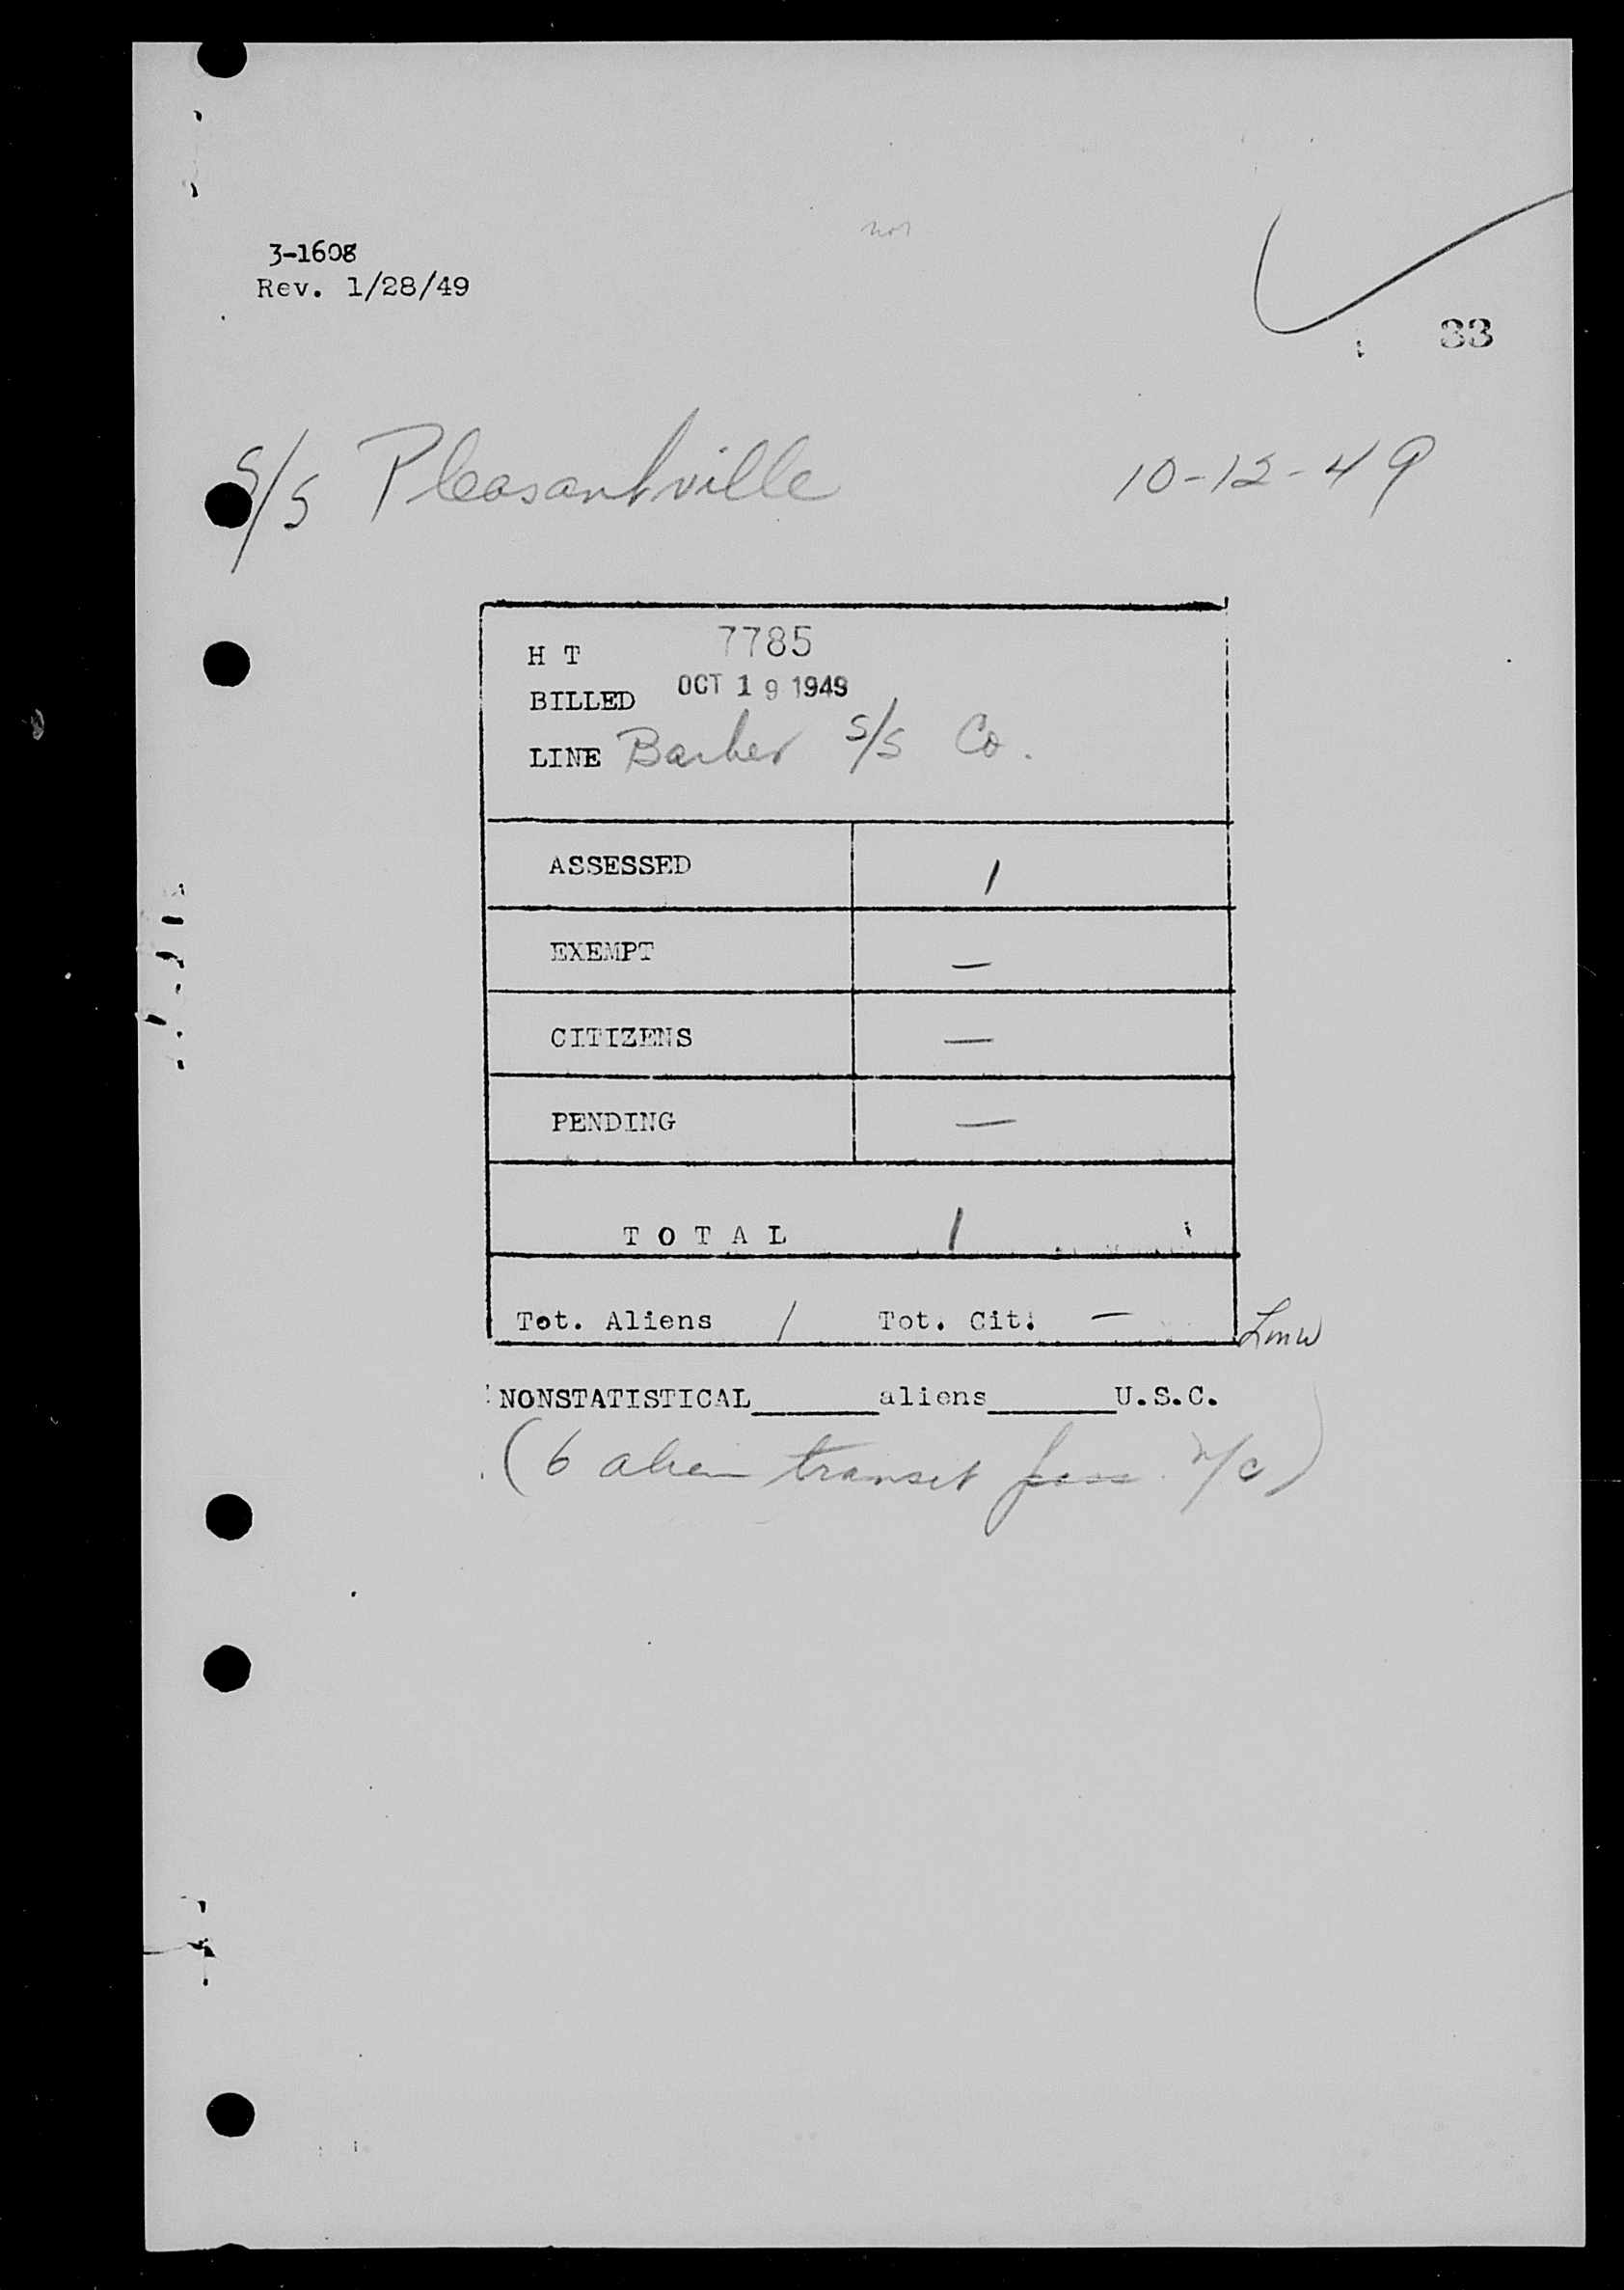 3-1608
Rev. 1/28/49
33
S/S Pleasantville 10-12-49
H T 7785
BILLED OCT 19 1949
LINE Barber S/S Co.
ASSESSED 1
EXEMPT —
CITIZENS —
PENDING —
TOTAL 1
Tot. Aliens 1 Tot. Cit. —
Lmw
NONSTATISTICAL______aliens______U.S.C.
(6 alien transit pass. n/c)